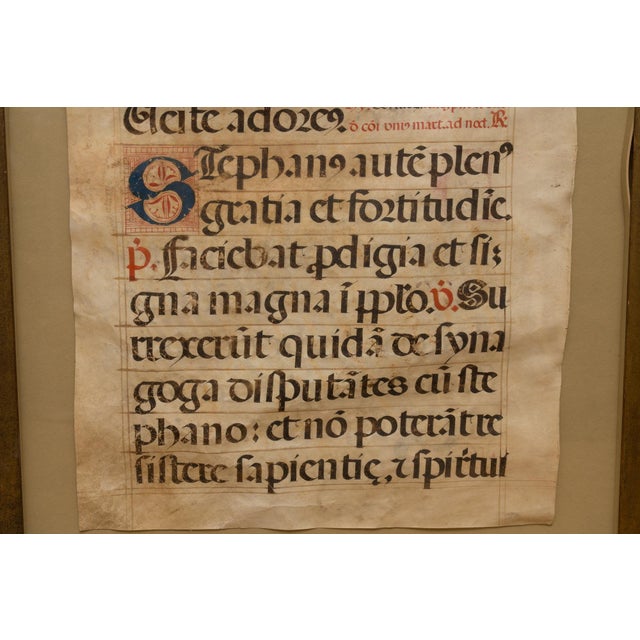 cite adoreꝰ.
ō cōi unis mart. ad noct. R.
Stephanꝰ autē plenꝰ
gratia et fortitudīe.
p̄. Faciebat ꝓdigia et si⸗
gna magna ī pplo. v̄. Su
rrexerūt quidā de syna
goga disputātes cū ste
phano: et nō poterāt re
sistere sapientię, ⁊ spiritui